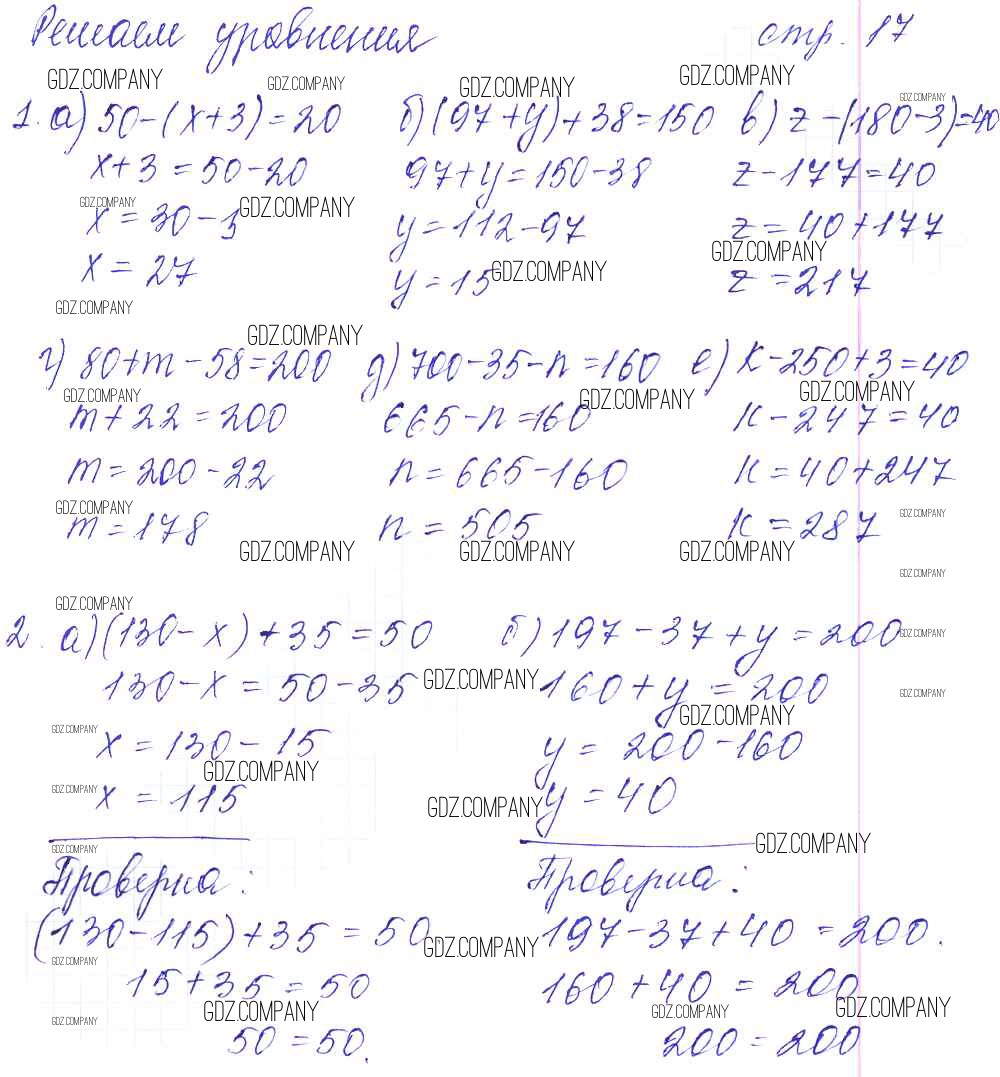 Решаем уравнения стр. 17
GDZ.COMPANY GDZ.COMPANY GDZ.COMPANY GDZ.COMPANY GDZ.COMPANY
1. а) 50-(x+3)=20 б) (97+y)+38=150 в) z-(180-3)=40
x+3=50-20 97+y=150-38 z-177=40
GDZ.COMPANY GDZ.COMPANY
x=30-3 y=112-97 z=40+177
GDZ.COMPANY GDZ.COMPANY
x=27 y=15 z=217
GDZ.COMPANY GDZ.COMPANY
г) 80+m-58=200 д) 700-35-n=160 е) k-250+3=40
GDZ.COMPANY GDZ.COMPANY GDZ.COMPANY
m+22=200 665-n=160 k-247=40
m=200-22 n=665-160 k=40+247
GDZ.COMPANY GDZ.COMPANY
m=178 n=505 k=287
GDZ.COMPANY GDZ.COMPANY GDZ.COMPANY
GDZ.COMPANY
GDZ.COMPANY
2. а) (130-x)+35=50 б) 197-37+y=200
GDZ.COMPANY
130-x=50-35 160+y=200
GDZ.COMPANY GDZ.COMPANY
GDZ.COMPANY GDZ.COMPANY
x=130-15 y=200-160
GDZ.COMPANY
x=115 y=40
GDZ.COMPANY GDZ.COMPANY
GDZ.COMPANY GDZ.COMPANY
Проверка: Проверка:
(130-115)+35=50 197-37+40=200.
GDZ.COMPANY GDZ.COMPANY
15+35=50 160+40=200
GDZ.COMPANY GDZ.COMPANY GDZ.COMPANY GDZ.COMPANY
50=50. 200=200